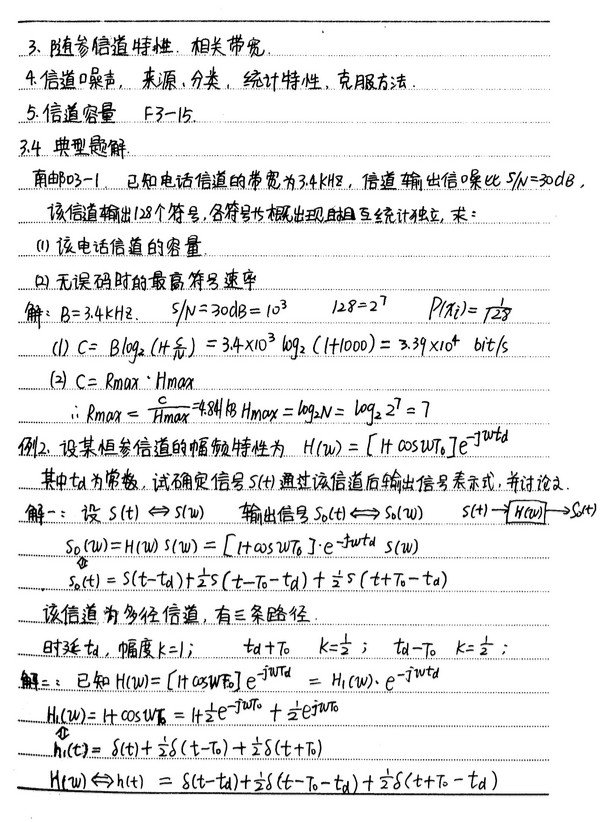 3、随参信道特性. 相关带宽.
4.信道噪声, 来源、分类, 统计特性, 克服方法.
5.信道容量 F3-15.
3.4 典型题解.
南邮03-1. 已知电话信道的带宽为3.4KHz, 信道输出信噪比 S/N=30dB,
该信道输出128个符号,各符号等概出现且相互统计独立, 求:
(1) 该电话信道的容量.
(2) 无误码时的最高符号速率
解: B=3.4KHz. S/N=30dB=10³ 128=2⁷ P(xi)=1/128
(1) C= Blog₂(1+S/N) = 3.4×10³ log₂(1+1000) = 3.39×10⁴ bit/s
(2) C=Rmax·Hmax
∴ Rmax = C/Hmax =4.84KB Hmax=log₂N= log₂2⁷=7
例2、设某恒参信道的幅频特性为 H(w)=[1+coswT₀]e^-jwtd
其中td为常数, 试确定信号S(t)通过该信道后输出信号表示式, 并讨论之.
解一: 设 S(t)⇔S(w) 输出信号S₀(t)⇔S₀(w) S(t)→H(w)→S₀(t)
S₀(w)=H(w)S(w)=[1+coswT₀]·e^-jwtd S(w)
⇕
S₀(t)=S(t-td)+½S(t-T₀-td)+½S(t+T₀-td)
该信道为多径信道, 有三条路径.
时延td, 幅度K=1; td+T₀ K=½; td-T₀ K=½;
解二: 已知H(w)=[1+coswT₀]e^-jwTd = H₁(w)·e^-jwtd
H₁(w)=1+coswT₀=1+½e^-jwT₀+½e^jwT₀
⇕
h₁(t)=δ(t)+½δ(t-T₀)+½δ(t+T₀)
H(w)⇔h(t) = δ(t-td)+½δ(t-T₀-td)+½δ(t+T₀-td)